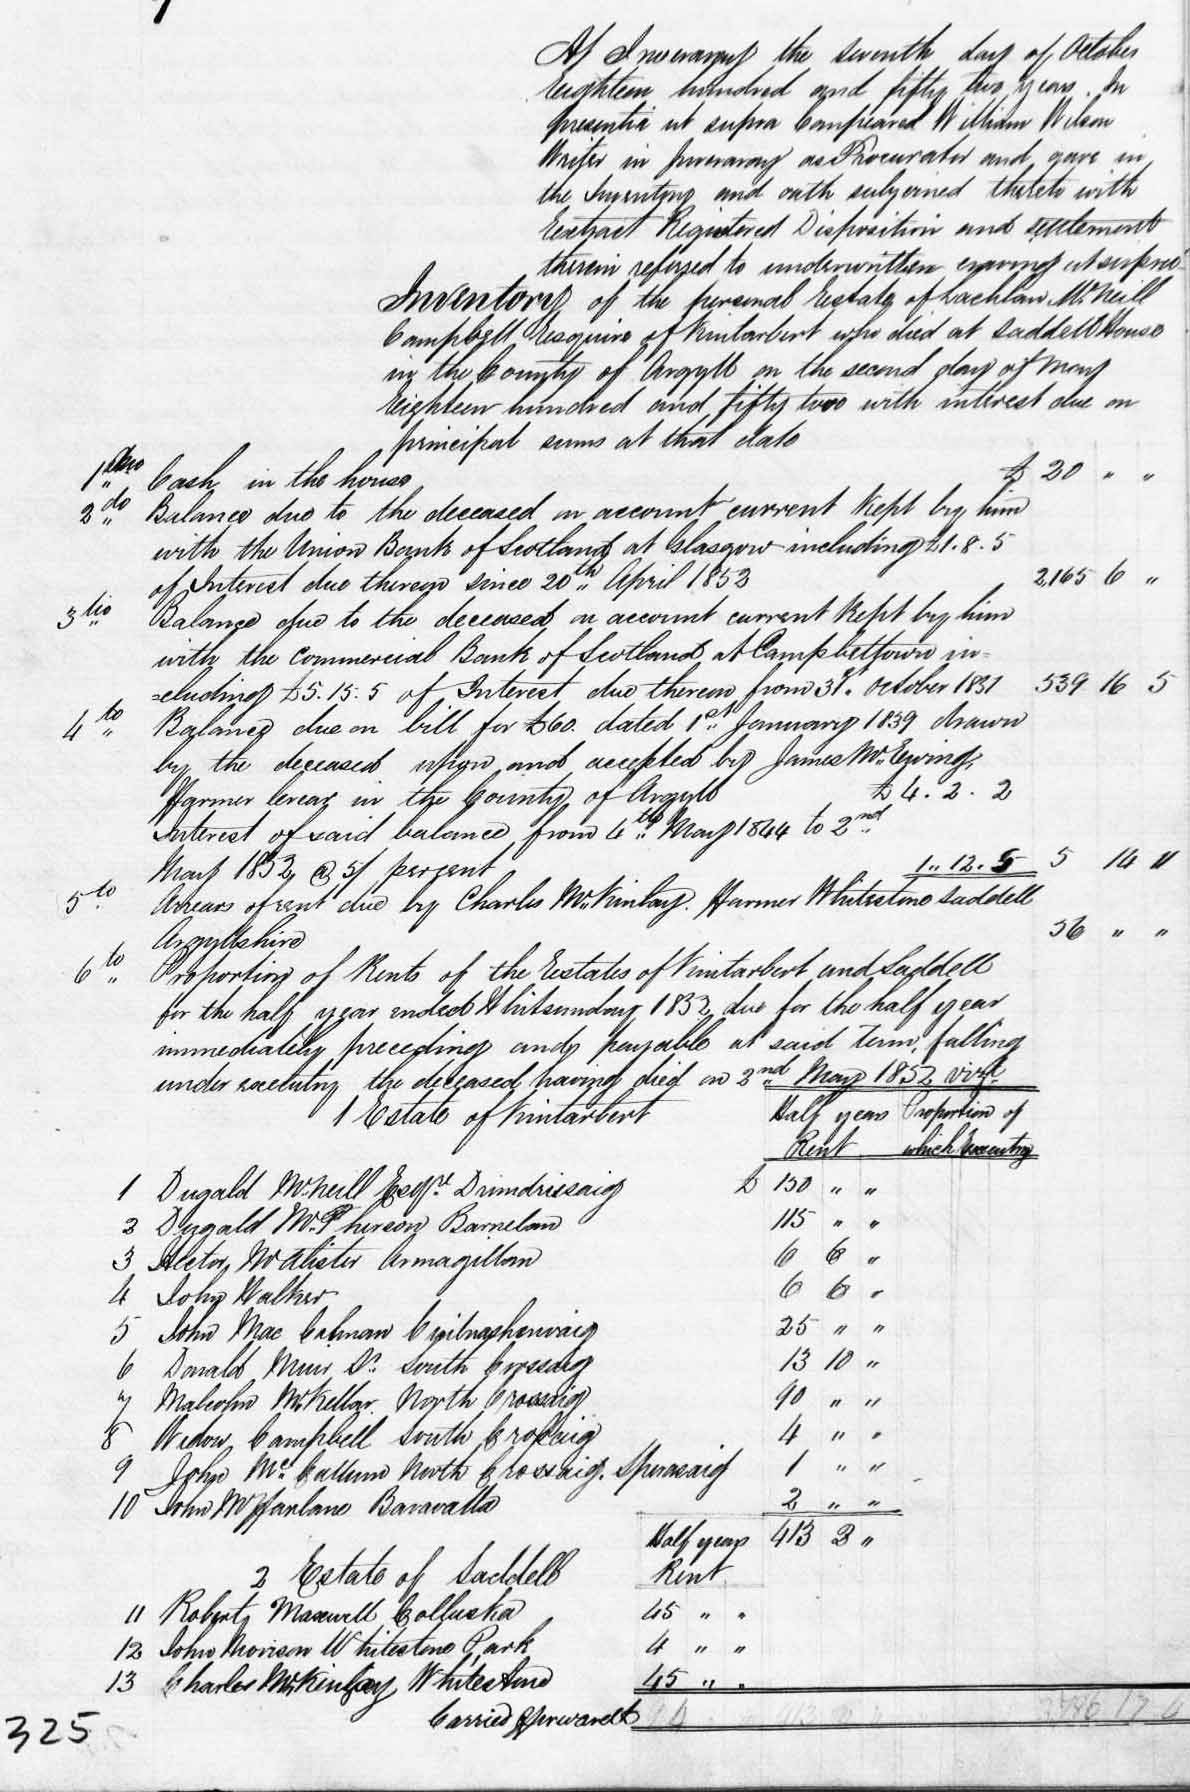 At Inveraray the seventh day of October
Eighteen hundred and fifty two years. In
presentia ut supra Compeared William Wilson
Writer in Inveraray as Procurator and gave in
the Inventory and oath subjoined thereto with
Extract Registered Disposition and settlement
therein referred to underwritten craving ut supra
Inventory of the personal Estate of Lachlan McNeill
Campbell Esquire of Kintarbert who died at Saddell House
in the County of Argyll on the second day of May
Eighteen hundred and fifty two with interest due on
principal sums at that date
1mo Cash in the house £ 20 " "
2do Balance due to the deceased on account current kept by him
with the Union Bank of Scotland at Glasgow including £1.8.5
of Interest due thereon since 20th April 1852 2165 6 "
3tio Balance due to the deceased on account current kept by him
with the Commercial Bank of Scotland at Campbeltown in=
=cluding £5.15.5 of Interest due thereon from 31st October 1851 539 16 5
4to Balance due on bill for £60. dated 1st January 1839 drawn
by the deceased upon and accepted by James McEwing,
Farmer in the County of Argyll £4.2.2
Interest of said balance from 4th May 1844 to 2nd
May 1852 @ 5/ percent 1..12.5 5 14 "
5to Arrears of rent due by Charles McKinlay Farmer Whitestone Saddell
Argyllshire 36 " "
6to Proporting of Rents of the Estates of Kintarbert and Saddell
for the half year ended Whitsunday 1852 due for the half year
immediately preceding and payable at said term, falling
under executry the deceased having died on 2nd May 1852 vizt
1 Estate of Kintarbert Half years Proportion of
Rent which Executry
1 Dugald McNeill Esqre Drimdrissaig £ 150 " "
2 Dugald McPherson Barnelan 115 " "
3 Hector McAlister Armagillan 6 6 "
4 John Walker 6 6 "
5 John Mac Calman 25 " "
6 Donald Muir Sr. South Crossaig 13 10 "
7 Malcolm McKellar North Crossaig 90 " "
8 Widow Campbell South Crossaig 4 " "
9 John McCallum North Crossaig, Sperasaig 1 " "
10 John McFarlane Baravalla 2 " "
Half years 413 2 "
2 Estate of Saddell Rent
11 Robert Maxwell Colluska 45 " "
12 John Morison Whitestone Park 4 " "
13 Charles McKinlay Whitestone 45 " "
Carried forward £
325